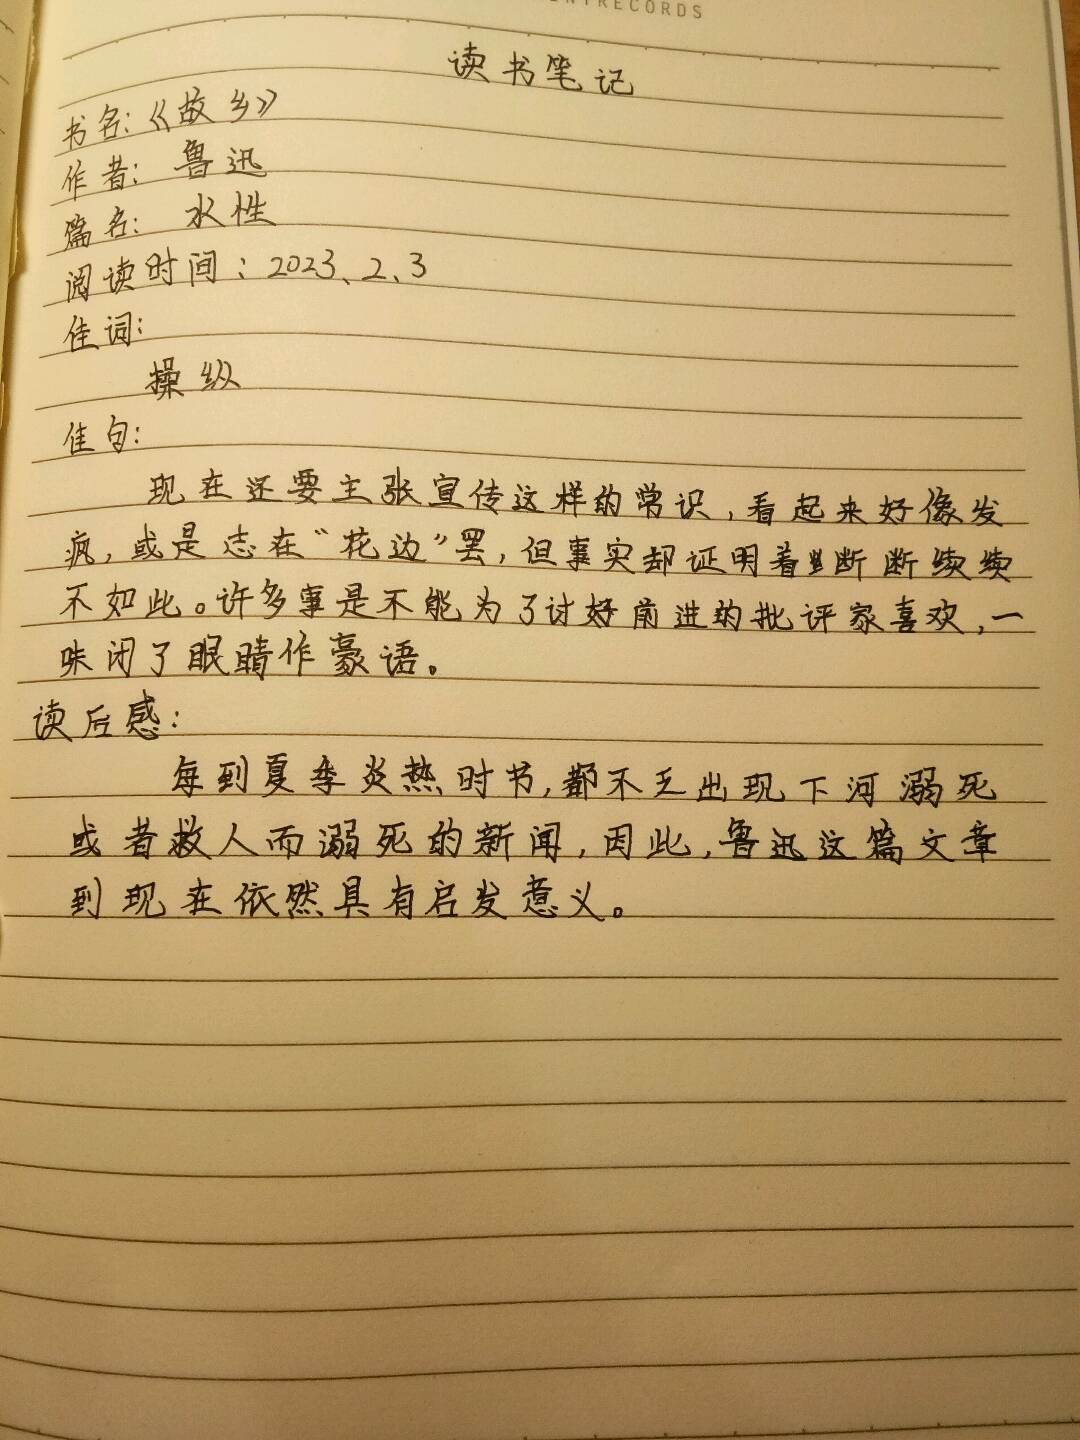 RECORDS
读书笔记
书名:《故乡》
作者: 鲁迅
篇名: 水性
阅读时间: 2023、2、3
佳词:
操纵
佳句:
现在还要主张宣传这样的常识,看起来好像发
疯,或是志在“花边”罢,但事实却证明着断断续续
不如此。许多事是不能为了讨好前进的批评家喜欢,一
味闭了眼睛作豪语。
读后感:
每到夏季炎热时节,都不乏出现下河溺死
或者救人而溺死的新闻,因此,鲁迅这篇文章
到现在依然具有启发意义。